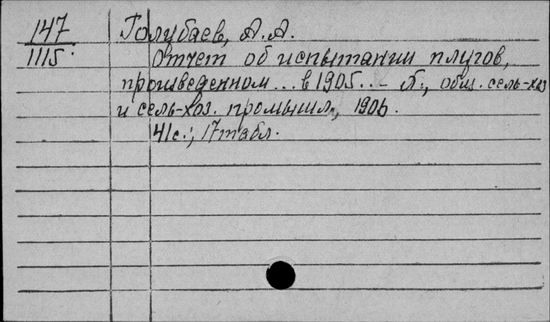 147 Голубаев, А.А.
1115 Отчет об испытании плугов,
произведенном... в 1905.. - Л., общ. сель-хоз
и сель-хоз. промышл., 1906.
41с.; 17табл.